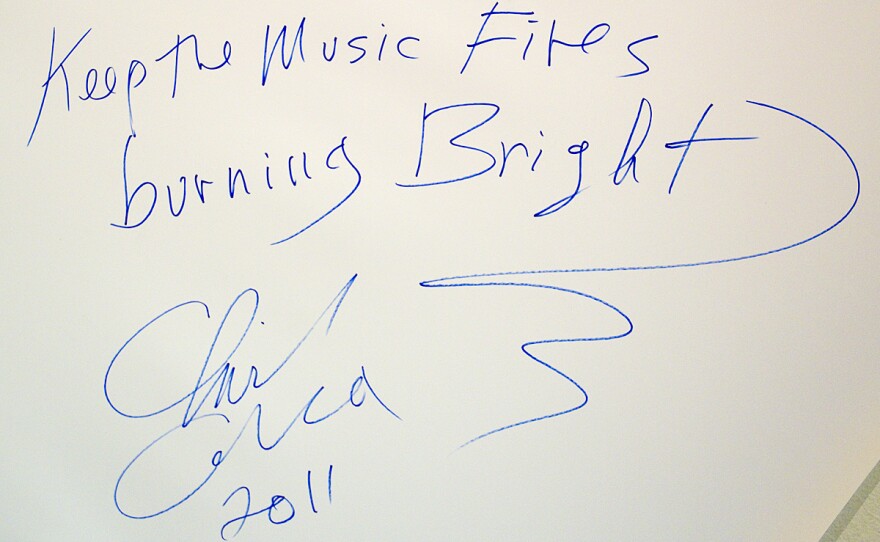 Keep the Music Fires
burning Bright
Chick
Corea
2011